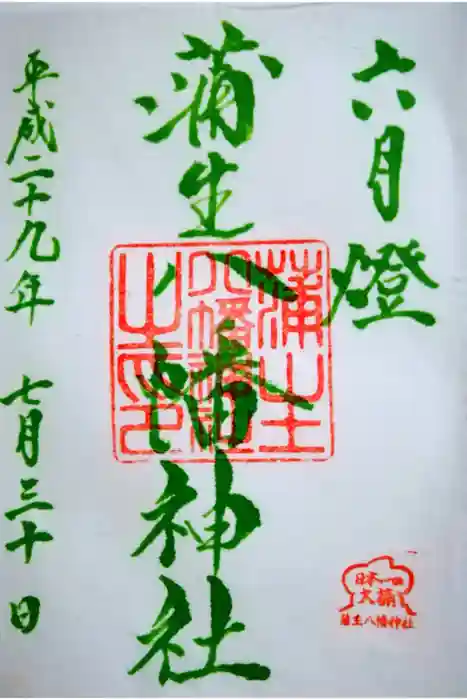 六月燈
蒲生八幡神社
平成二十九年 七月三十日
蒲生
八幡神社
之印
日本一の
大楠
蒲生八幡神社